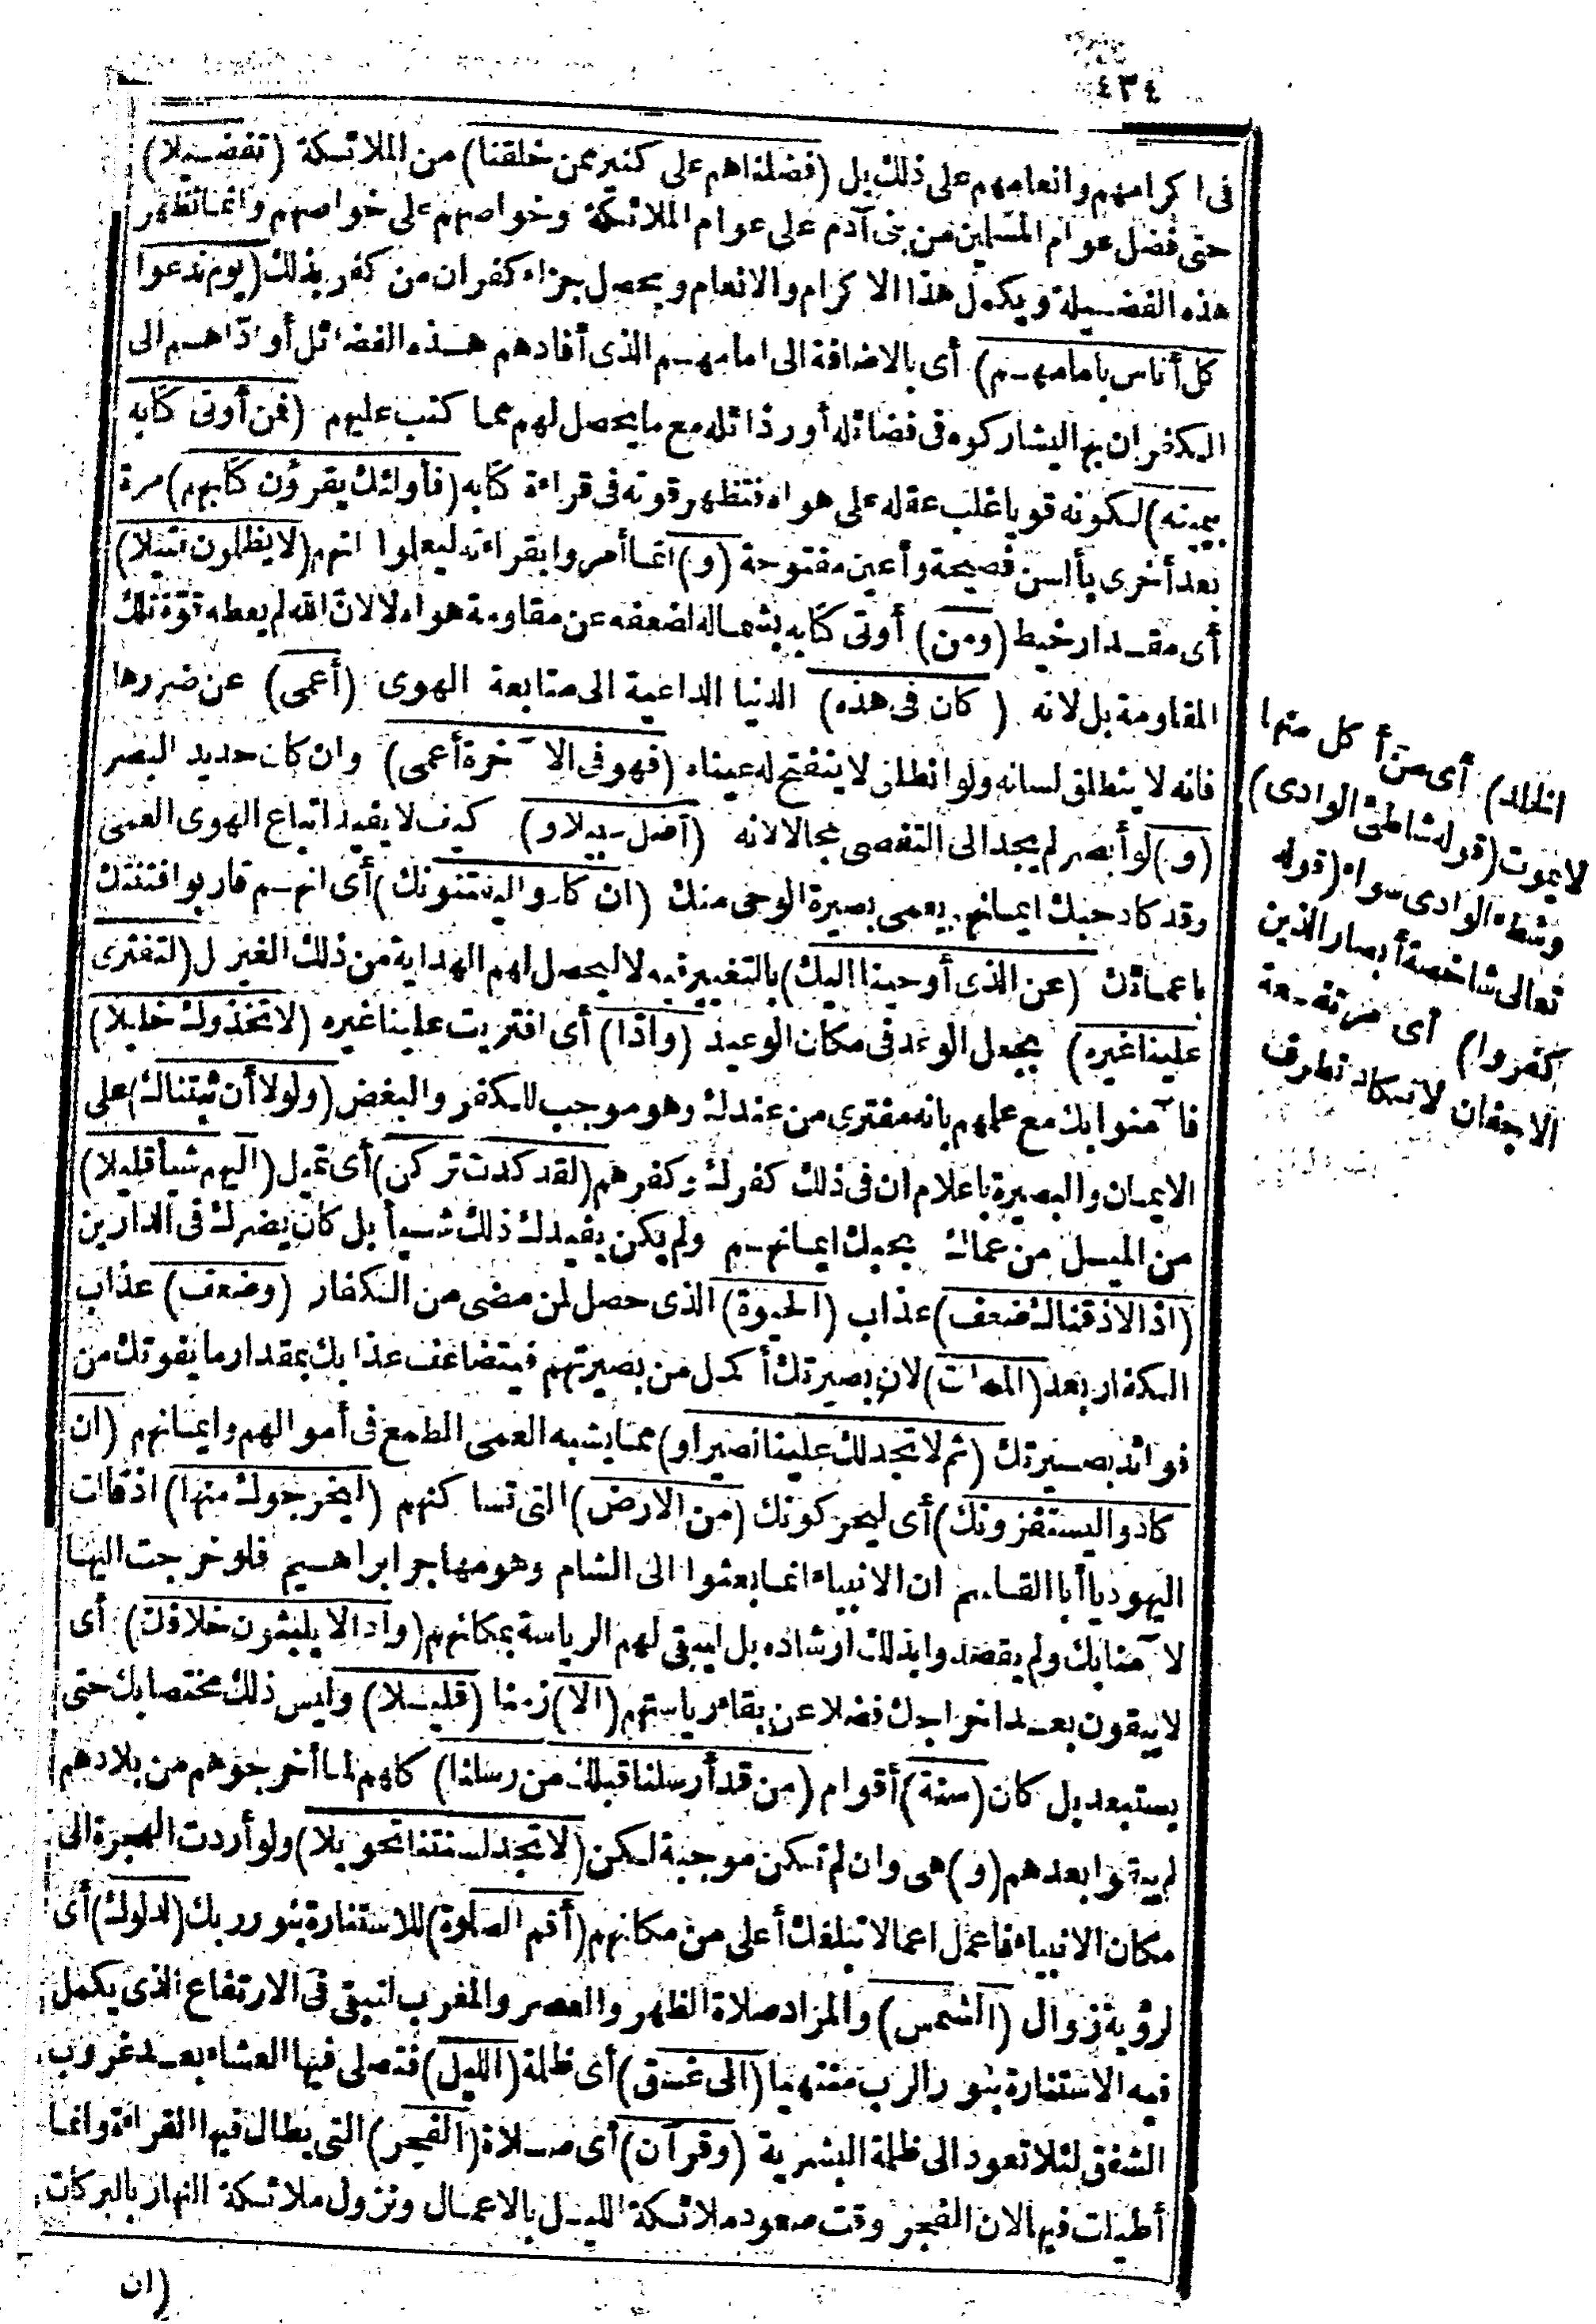 ٤٣٤
فى اكرامهم وانعامهم على ذلك بل (فضلناهم على كثير ممن خلقنا) من الملائكة (تفضيلا)
حتى فضل عوام المسلمين من بنى آدم على عوام الملائكة وخواصهم على خواصهم وانما تظهر
هذه الفضيلة ويكمل هذا الاكرام والانعام ويحصل جزاء كفران من كفر بذلك (يوم ندعوا
كل أناس بامامهم) أى بالاضافة الى امامهم الذى أفادهم هذه الفضائل أو اداهم الى
الكفران بها ليشاركوه فى فضائله أو رذائله مع ما يحصل لهم مما كتب عليهم (فمن أوتى كتابه
بيمينه) لكونه قويا غلب عقله على هواه فتظهر قوته فى قراءة كتابه (فأولئك يقرؤن كتابهم) مرة
بعد أخرى بألسن فصيحة وأعين مفتوحة (و) انما أمروا بقراءته ليعلوا انهم (لا يظلمون فتيلا)
أى مقدار خيط (ومن) أوتى كتابه بشماله لضعفه عن مقاومة هواه لا لان الله لم يعطه قوة تلك
المقاومة بل لانه (كان فى هذه) الدنيا الداعية الى متابعة الهوى (أعمى) عن ضررها
فانه لا ينطلق لسانه ولو انطلق لا ينفتح له عيناه (فهو فى الآخرة أعمى) وان كان حديد البصر
(و) لو أبصر لم يجد الى التفصى مجالا لانه (أضل سبيلا و) كيف لا يفيد اتباع الهوى العمى
وقد كاد حبك ايمانهم يعمى بصيرة الوحى منك (ان كادوا ليفتنونك) أى انهم قاربوا فتنتك
باعمائك (عن الذى أوحينا اليك) بالتغيير فيه لا ليحصل لهم الهداية من ذلك الغير ل (لتفترى
علينا غيره) بجعل الوعد فى مكان الوعيد (واذا) أى افتريت علينا غيره (لاتخذوك خليلا)
فآمنوا بك مع علمهم بانه مفترى من عندك وهو موجب للكفر والبغض (ولولا أن ثبتناك) على
الايمان والبصيرة باعلام ان فى ذلك كفرك وكفرهم (لقد كدت تركن) أى تميل (اليهم شيأ قليلا)
من الميل من عماك بحبك ايمانهم ولم يكن يفيدك ذلك شيأ بل كان يضرك فى الدارين
(اذا لاذقناك ضعف) عذاب (الحيوة) الذى حصل لمن مضى من الكفار (وضعف) عذاب
الكفار بعد (الممات) لان بصيرتك أكمل من بصيرتهم فيتضاعف عذابك بمقدار ما يفوتك من
فوائد بصيرتك (ثم لا تجد لك علينا نصيرا و) مما يشبه العمى الطمع فى أموالهم وايمانهم (ان
كادوا ليستفزونك) أى ليحركونك (من الارض) التى تساكنهم (ليخرجوك منها) اذ قالت
اليهود يا أبا القاسم ان الانبياء انما بعثوا الى الشام وهو مهاجر ابراهيم فلو خرجت اليها
لآمنا بك ولم يقصدوا بذلك ارشاده بل ليبقى لهم الرياسة بمكانهم (واذا لا يلبثون خلافك) أى
لا يبقون بعد اخراجك فضلا عن بقاء رياستهم (الا) زمنا (قليلا) وليس ذلك مختصا بك حتى
يستبعد بل كان (سنة) أقوام (من قد أرسلنا قبلك من رسلنا) كلهم لما أخرجوهم من بلادهم
لم يبقوا بعدهم (و) هى وان لم تكن موجبة لكن (لا تجد لسنتنا تحويلا) ولو أردت الهجرة الى
مكان الانبياء فاعمل اعمالا تبلغك أعلى من مكانهم (أقم الصلوة) للاستنارة بنور ربك (لدلوك) أى
لرؤية زوال (الشمس) والمراد صلاة الظهر والعصر والمغرب لتبقى فى الارتفاع الذى يكمل
فيه الاستنارة بنور الرب منتهيا (الى غسق) أى ظلمة (الليل) فتصلى فيها العشاء بعد غروب
الشفق لئلا تعود الى ظلمة البشرية (وقرآن) أى صلاة (الفجر) التى يطال فيها القراءة وانما
أطيلت فيها لان الفجر وقت صعود ملائكة الليل بالاعمال ونزول ملائكة النهار بالبركات
(ان
الخلد) أى من أكل منها
لا يموت (قوله شاطئ الوادى)
وشطه الوادى سواء (قوله
تعالى شاخصة أبصار الذين
كفروا) أى مرتفعة
الاجفان لا تكاد تطرف